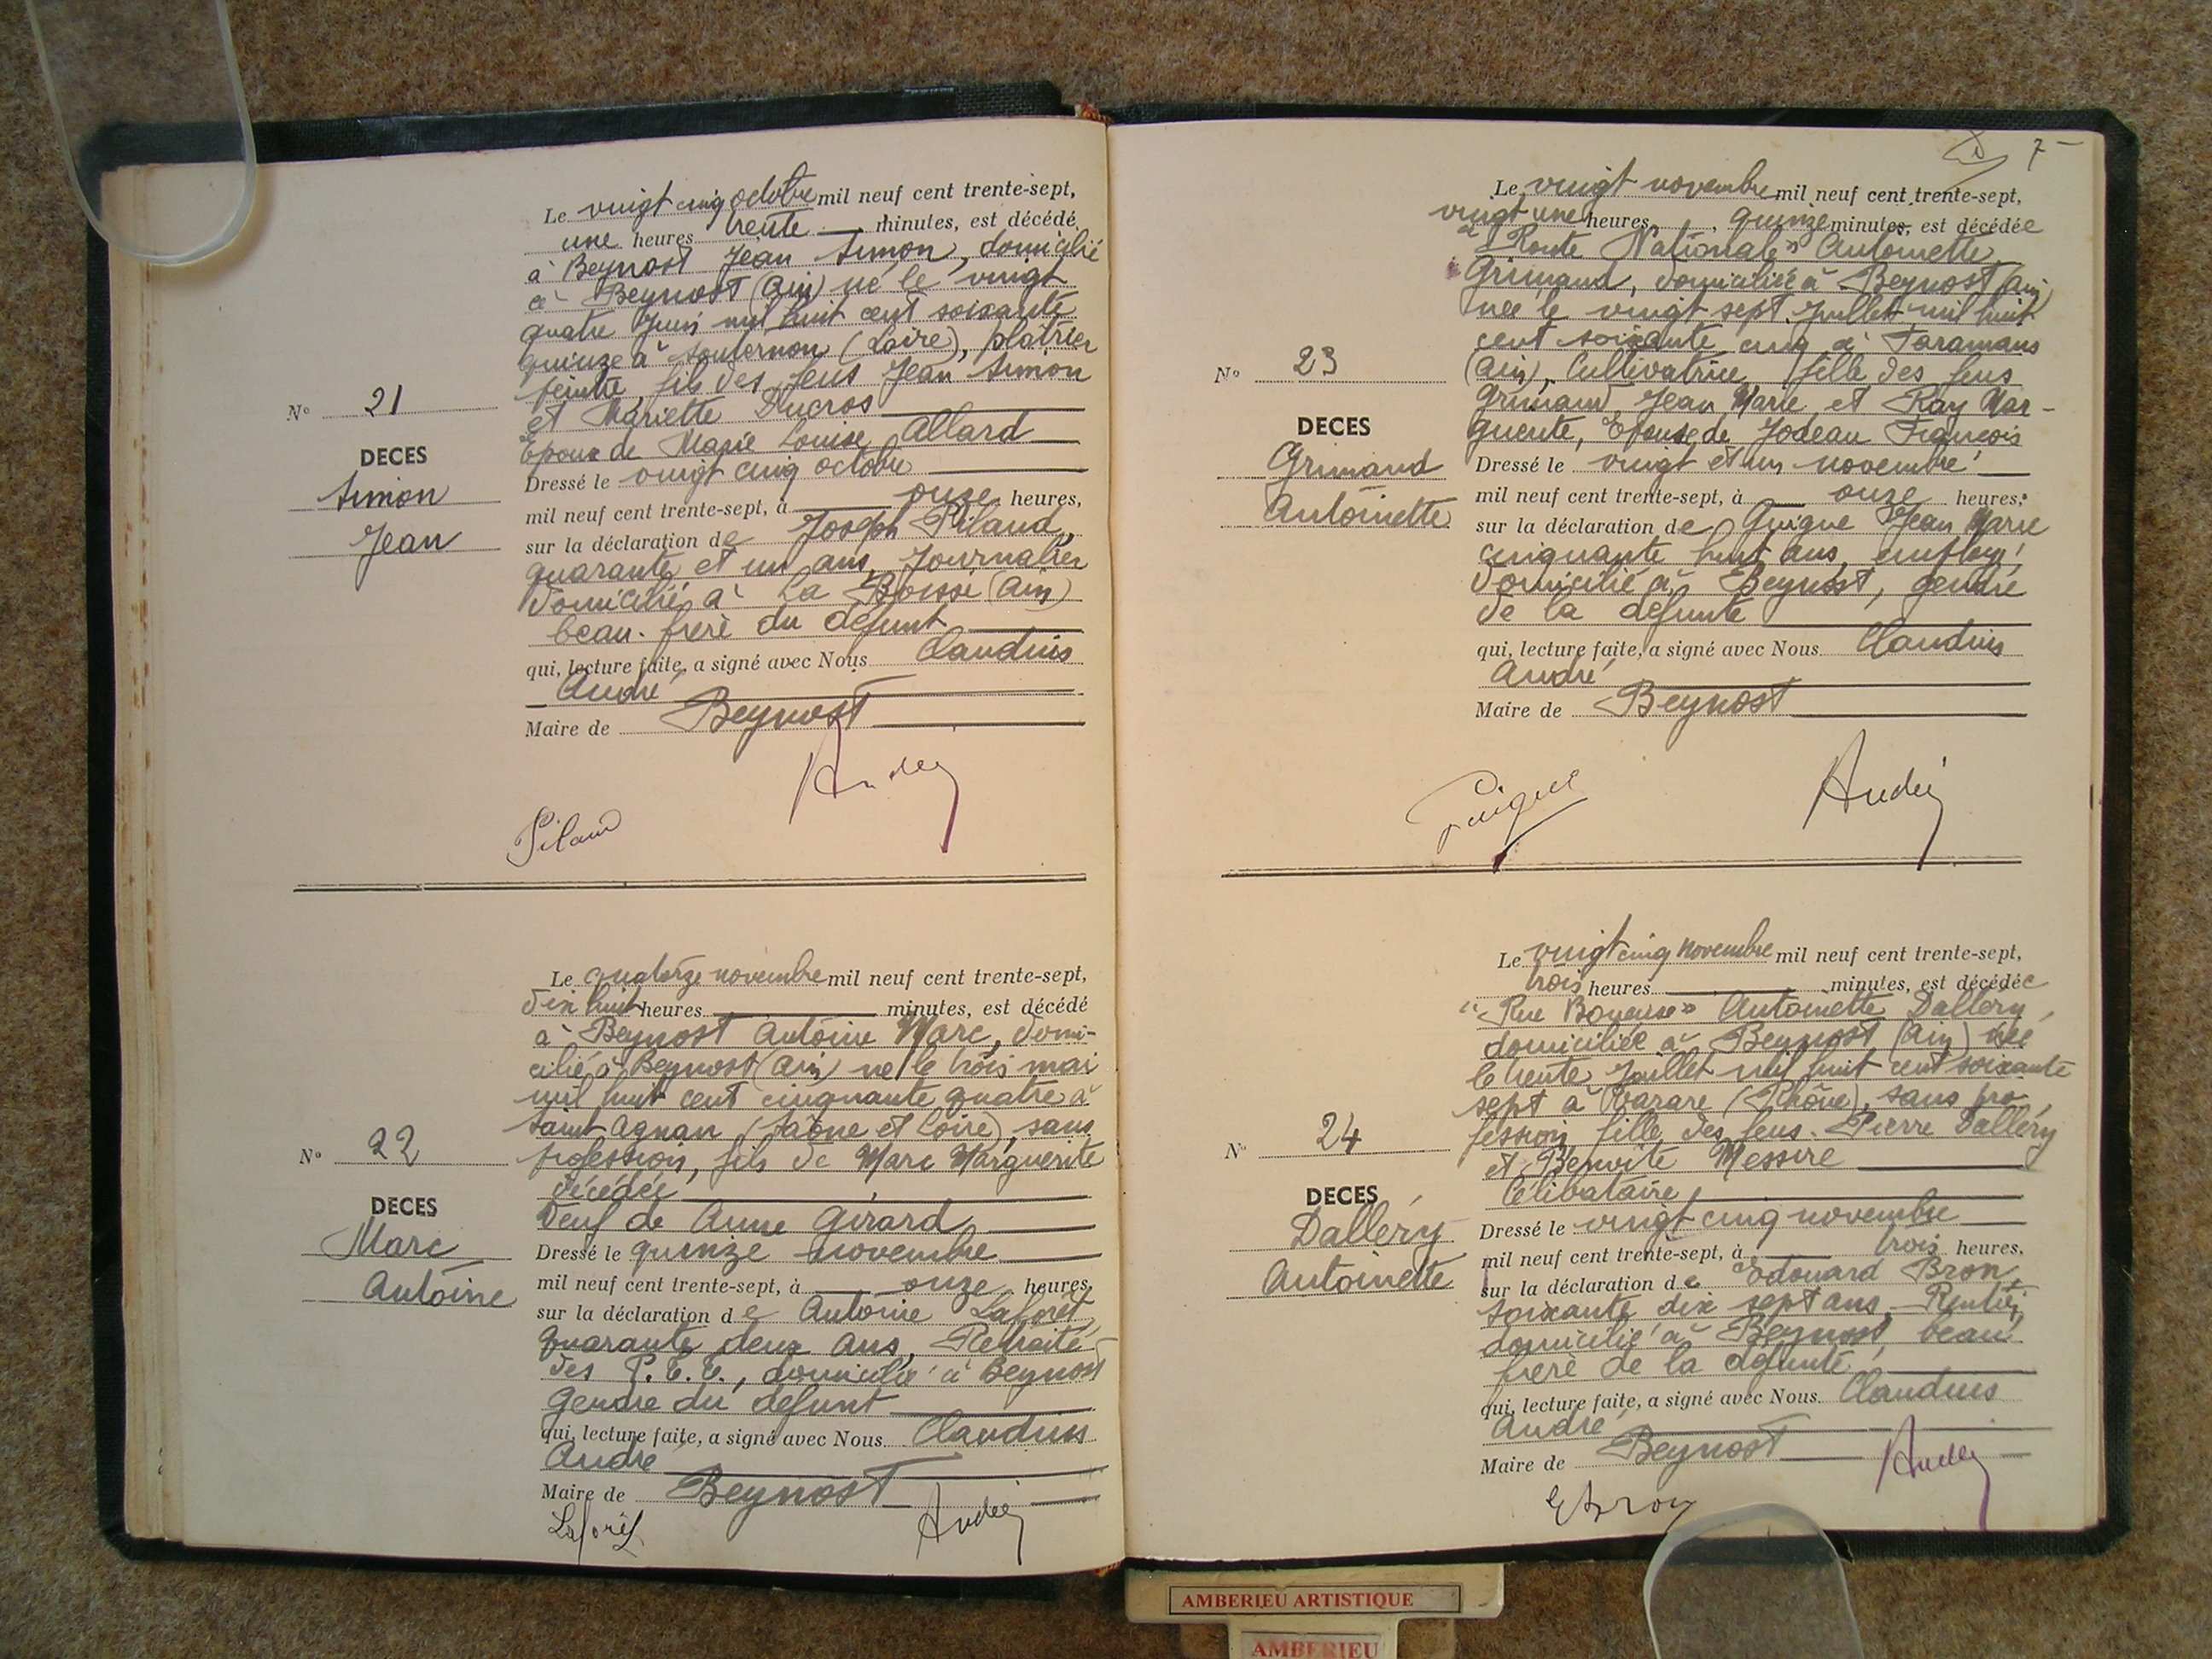 Le vingt cinq octobre mil neuf cent trente-sept,
une heures trente minutes, est décédé
à Beynost Jean Simon, domicilié
à Beynost (Ain) né le vingt
quatre Juin mil huit cent soixante
quinze à Souternon (Loire), plâtrier
peintre, fils des feus Jean Simon
et Mariette Ducros
Epoux de Marie Louise Allard
N° 21
DECES
Simon
Jean
Dressé le vingt cinq octobre
mil neuf cent trente-sept, à onze heures,
sur la déclaration de Joseph Pilaud,
quarante et un ans, Journalier
domicilié à La Boisse (Ain)
beau-frère du défunt
qui, lecture faite, a signé avec Nous Claudius
André
Maire de Beynost
André
Pilaud
Le quatorze novembre mil neuf cent trente-sept,
dix huit heures minutes, est décédé
à Beynost Antoine Marc, domi-
cilié à Beynost (Ain) né le trois mai
mil huit cent cinquante quatre à
Saint Agnan (Saône et Loire), sans
profession, fils de Marc Marguerite
décédée
Veuf de Anne Girard
N° 22
DECES
Marc
Antoine
Dressé le quinze novembre
mil neuf cent trente-sept, à onze heures,
sur la déclaration de Antoine Laforêt,
quarante deux ans, Retraité
des P.T.T., domicilié à Beynost
gendre du défunt
qui, lecture faite, a signé avec Nous Claudius
André
Maire de Beynost
Laforêt André
7
Le vingt novembre mil neuf cent trente-sept,
vingt une heures, quinze minutes, est décédée
"Route Nationale" Antoinette
Grimand, domiciliée à Beynost (Ain)
née le vingt sept Juillet mil huit
cent soixante cinq à Faramans
(Ain), Cultivatrice, fille des feus
Grimand Jean Marie et Ray Mar-
guerite, Epouse de Jodeau François
N° 23
DECES
Grimand
Antoinette
Dressé le vingt et un novembre
mil neuf cent trente-sept, à onze heures,
sur la déclaration de Guigue Jean Marie
cinquante huit ans, employé,
domicilié à Beynost, gendre
de la défunte
qui, lecture faite, a signé avec Nous Claudius
André
Maire de Beynost
Guigue André
Le vingt cinq novembre mil neuf cent trente-sept,
trois heures minutes, est décédée
"Rue" Antoinette Dalléry,
domiciliée à Beynost (Ain) née
le trente Juillet mil huit cent soixante
sept à Tarare (Rhône), sans pro
fession, fille des feus Pierre Dalléry
et Benoite Messire
Célibataire
N° 24
DECES
Dalléry
Antoinette
Dressé le vingt cinq novembre
mil neuf cent trente-sept, à trois heures,
sur la déclaration de Edouard Bron,
soixante dix sept ans, Rentier,
domicilié à Beynost, beau
frère de la défunte
qui, lecture faite, a signé avec Nous Claudius
André
Maire de Beynost André
E Bron
AMBERIEU ARTISTIQUE
AMBERIEU